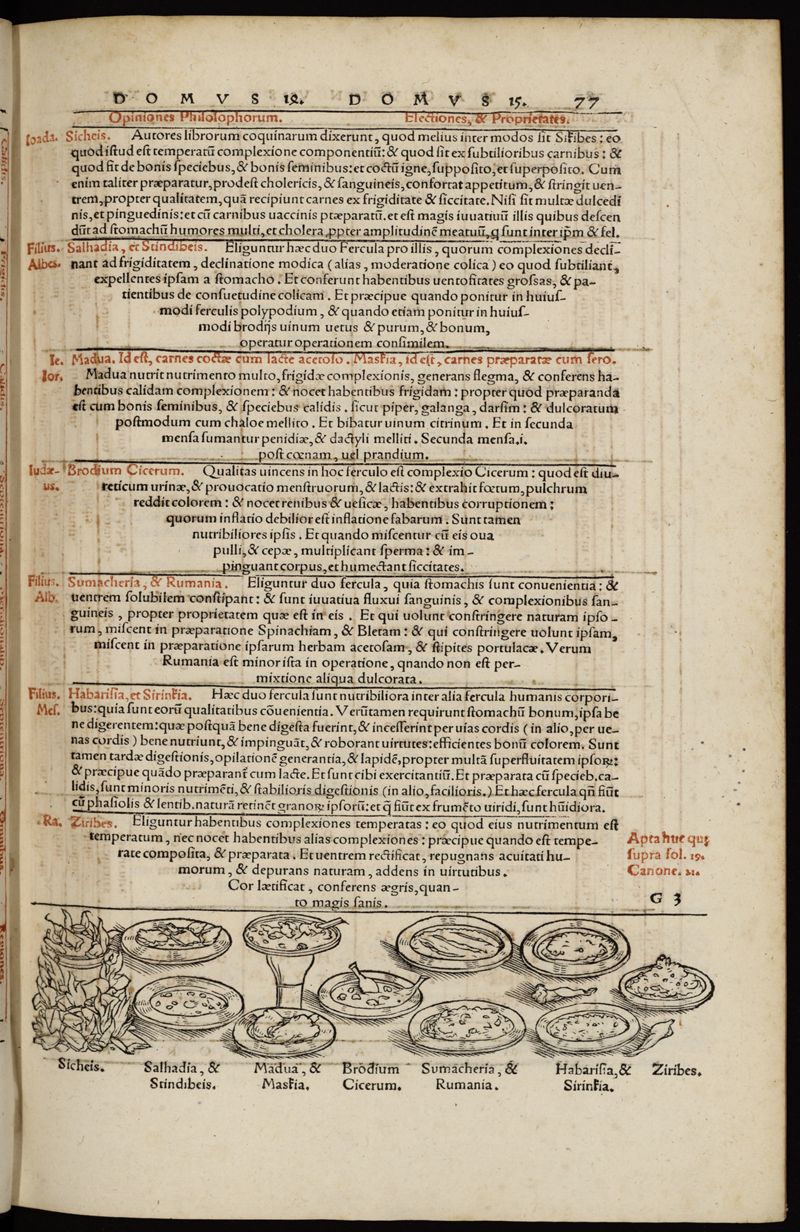 D O M V S 12. D O M V S 15. 77
Opiniones Philosophorum. Electiones, & Proprietates.
Ioada. Sicheis. Autores librorum coquinarum dixerunt, quod melius inter modos sit Sikibes: eo
quod istud est temperatū complexione componentiū: & quod sit ex subtilioribus carnibus: &
quod fit de bonis speciebus, & bonis seminibus: et coctū igne, supposito, et superposito. Cum
enim taliter præparatur, prodest cholericis, & sanguineis, confortat appetitum, & stringit uen-
trem, propter qualitatem, quā recipiunt carnes ex frigiditate & siccitate. Nisi sit multæ dulcedi
nis, et pinguedinis: et cū carnibus uaccinis præparatū. et est magis iuuatiuū illis quibus descen
dūt ad stomachū humores multi, et cholera, ppter amplitudinē meatuū, q sunt inter ipm & fel.
Filius. Salhadia, et Stindibeis. Eliguntur hæc duo Fercula pro illis, quorum complexiones decli-
Albes. nant ad frigiditatem, declinatione modica (alias, moderatione colica) eo quod subtiliant,
expellentes ipsam a stomacho. Et conferunt habentibus uentositates grossas, & pa-
tientibus de consuetudine colicam. Et præcipue quando ponitur in huius-
modi ferculis polypodium, & quando etiam ponitur in huius-
modi brodijs uinum uetus & purum, & bonum,
operatur operationem consimilem.
Ie. Madua. Id est, carnes coctæ cum lacte acetoso. Maskia, id est, carnes præparatæ cum sero.
Ior. Madua nutrit nutrimento multo, frigidæ complexionis, generans flegma, & conferens ha-
bentibus calidam complexionem: & nocet habentibus frigidam: propter quod præparanda
est cum bonis seminibus, & speciebus calidis. sicut piper, galanga, darsim: & dulcoratum
postmodum cum chaloe mellito. Et bibatur uinum citrinum. Et in secunda
mensa sumantur penidiæ, & dactyli melliti. Secunda mensa, i.
post cœnam, uel prandium.
Iudæ- Brodium Cicerum. Qualitas uincens in hoc ferculo est complexio Cicerum: quod est diu-
us. reticum urinæ, & prouocatio menstruorum, & lactis: & extrahit fœtum, pulchrum
reddit colorem: & nocet renibus & uesicæ, habentibus corruptionem:
quorum inflatio debilior est inflatione fabarum. Sunt tamen
nutribiliores ipsis. Et quando miscentur cū eis oua
pulli, & cepæ, multiplicant sperma: & im-
pinguant corpus, et humectant siccitates.
Filius. Sumacheria, & Rumania. Eliguntur duo fercula, quia stomachis sunt conuenientia: &
Alb. uentrem solubilem constipant: & sunt iuuatiua fluxui sanguinis, & complexionibus san-
guineis, propter proprietatem quæ est in eis. Et qui uolunt constringere naturam ipso-
rum, miscent in præparatione Spinachiam, & Bletam: & qui constringere uolunt ipsam,
miscent in præparatione ipsarum herbam acetosam, & stipites portulacæ. Verum
Rumania est minor ista in operatione, qnando non est per-
mixtione aliqua dulcorata.
Filius. Habarisia, et Sirinkia. Hæc duo fercula sunt nutribiliora inter alia fercula humanis corpori-
Mes. bus: quia sunt eorū qualitatibus cōuenientia. Verūtamen requirunt stomachū bonum, ipsa be
ne digerentem: quæ postquā bene digesta fuerint, & incesserint per uias cordis (in alio, per ue-
nas cordis) bene nutriunt, & impinguāt, & roborant uirtutes: efficientes bonū colorem. Sunt
tamen tardæ digestionis, opilationē generantia, & lapidē, propter multā superfluitatem ipsoꝝ:
& præcipue quādo præparant̄ cum lacte. Et sunt cibi exercitantiū. Et præparata cū specieb. ca-
lidis, sunt minoris nutrimēti, & stabilioris digestionis (in alio, facilioris.) Et hæc fercula qn̄ fiūt
cū phasiolis & lentib. naturā retinēt granoꝝ ipsorū: et q̄ fiūt ex frumēto uiridi, sunt hūidiora.
Ra. Ziribes. Eliguntur habentibus complexiones temperatas: eo quod eius nutrimentum est
temperatum, nec nocet habentibus alias complexiones: præcipue quando est tempe-
rate composita, & præparata. Et uentrem rectificat, repugnans acuitati hu-
morum, & depurans naturam, addens in uirtutibus.
Cor lætificat, conferens ægris, quan-
to magis sanis.
Apta huc quę
supra fol. 19.
Canone. 21.
G 3
Sicheis. Salhadia, & Madua, & Brodium Sumacheria, & Habarisia, & Ziribes.
Stindibeis. Maskia. Cicerum. Rumania. Sirinkia.